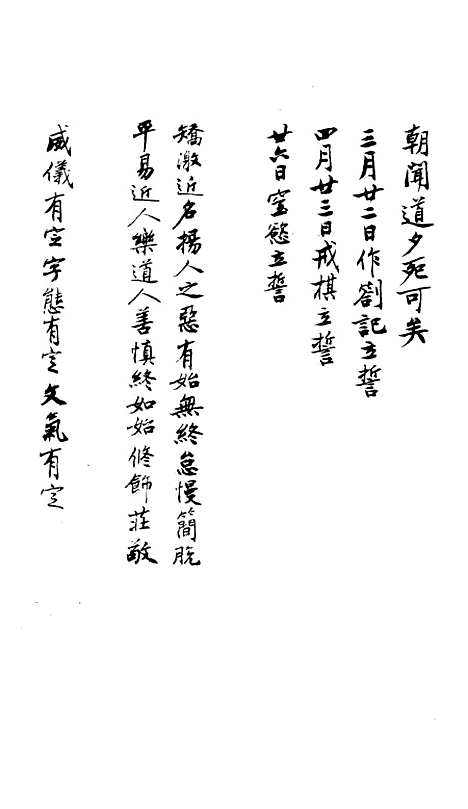 朝聞道夕死可矣
三月廿二日作劄記立誓
四月廿三日戒棋立誓
廿六日窒慾立誓
矯激近名揚人之惡有始無終怠慢簡脫
平易近人樂道人善慎終如始修飾莊敬
威儀有定字態有定文氣有定